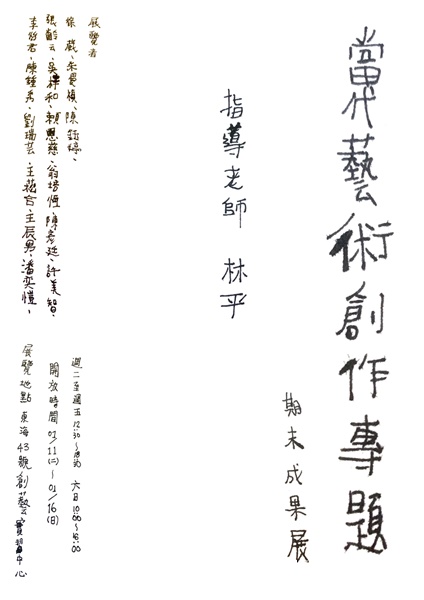 當代藝術創作專題
期末成果展
指導老師 林平
展覽者
徐 葳、朱晏禎、陳鈺婷、
張齡云、吳梓和、賴思慈、翁培恆、陳彥廷、許美智、
李啟君、陳鍾秀、劉瑞芸、王菘宮、王辰男、潘奕愷、
週二至週五 12:30~18:00 六日 10:00~18:00
開放時間 01/11(二)~01/16(日)
展覽地點 東海43號創藝實習中心